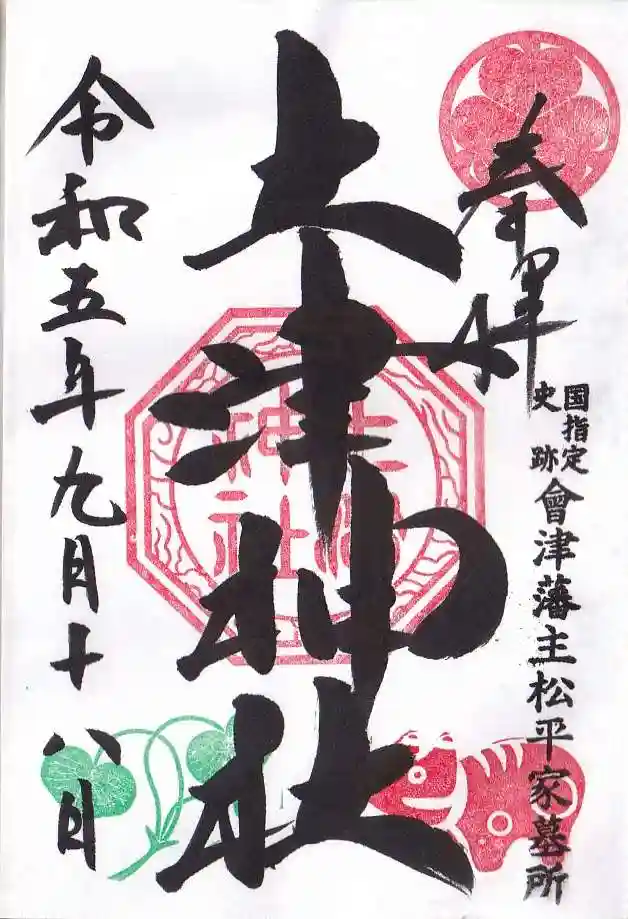 奉拝
国指定
史跡
會津藩主松平家墓所
土津神社
土津神社
令和五年九月十八日